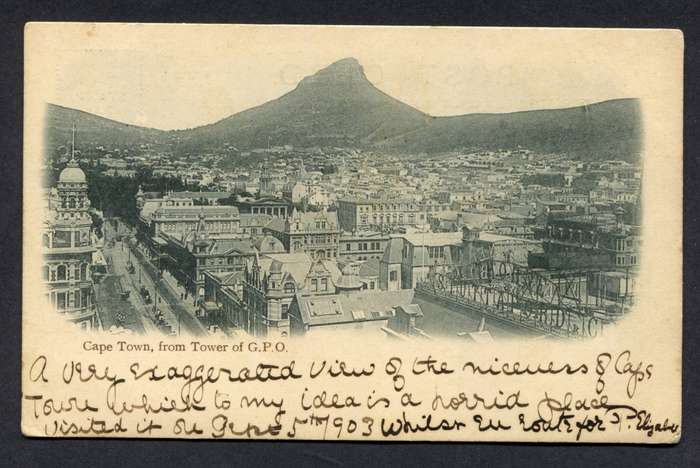 Cape Town, from Tower of G.P.O.
A very exaggerated view of the niceness of Cape
Town which to my idea is a horrid place
visited it on Sept 5th 1903 Whilst En Route for P. Elizabeth